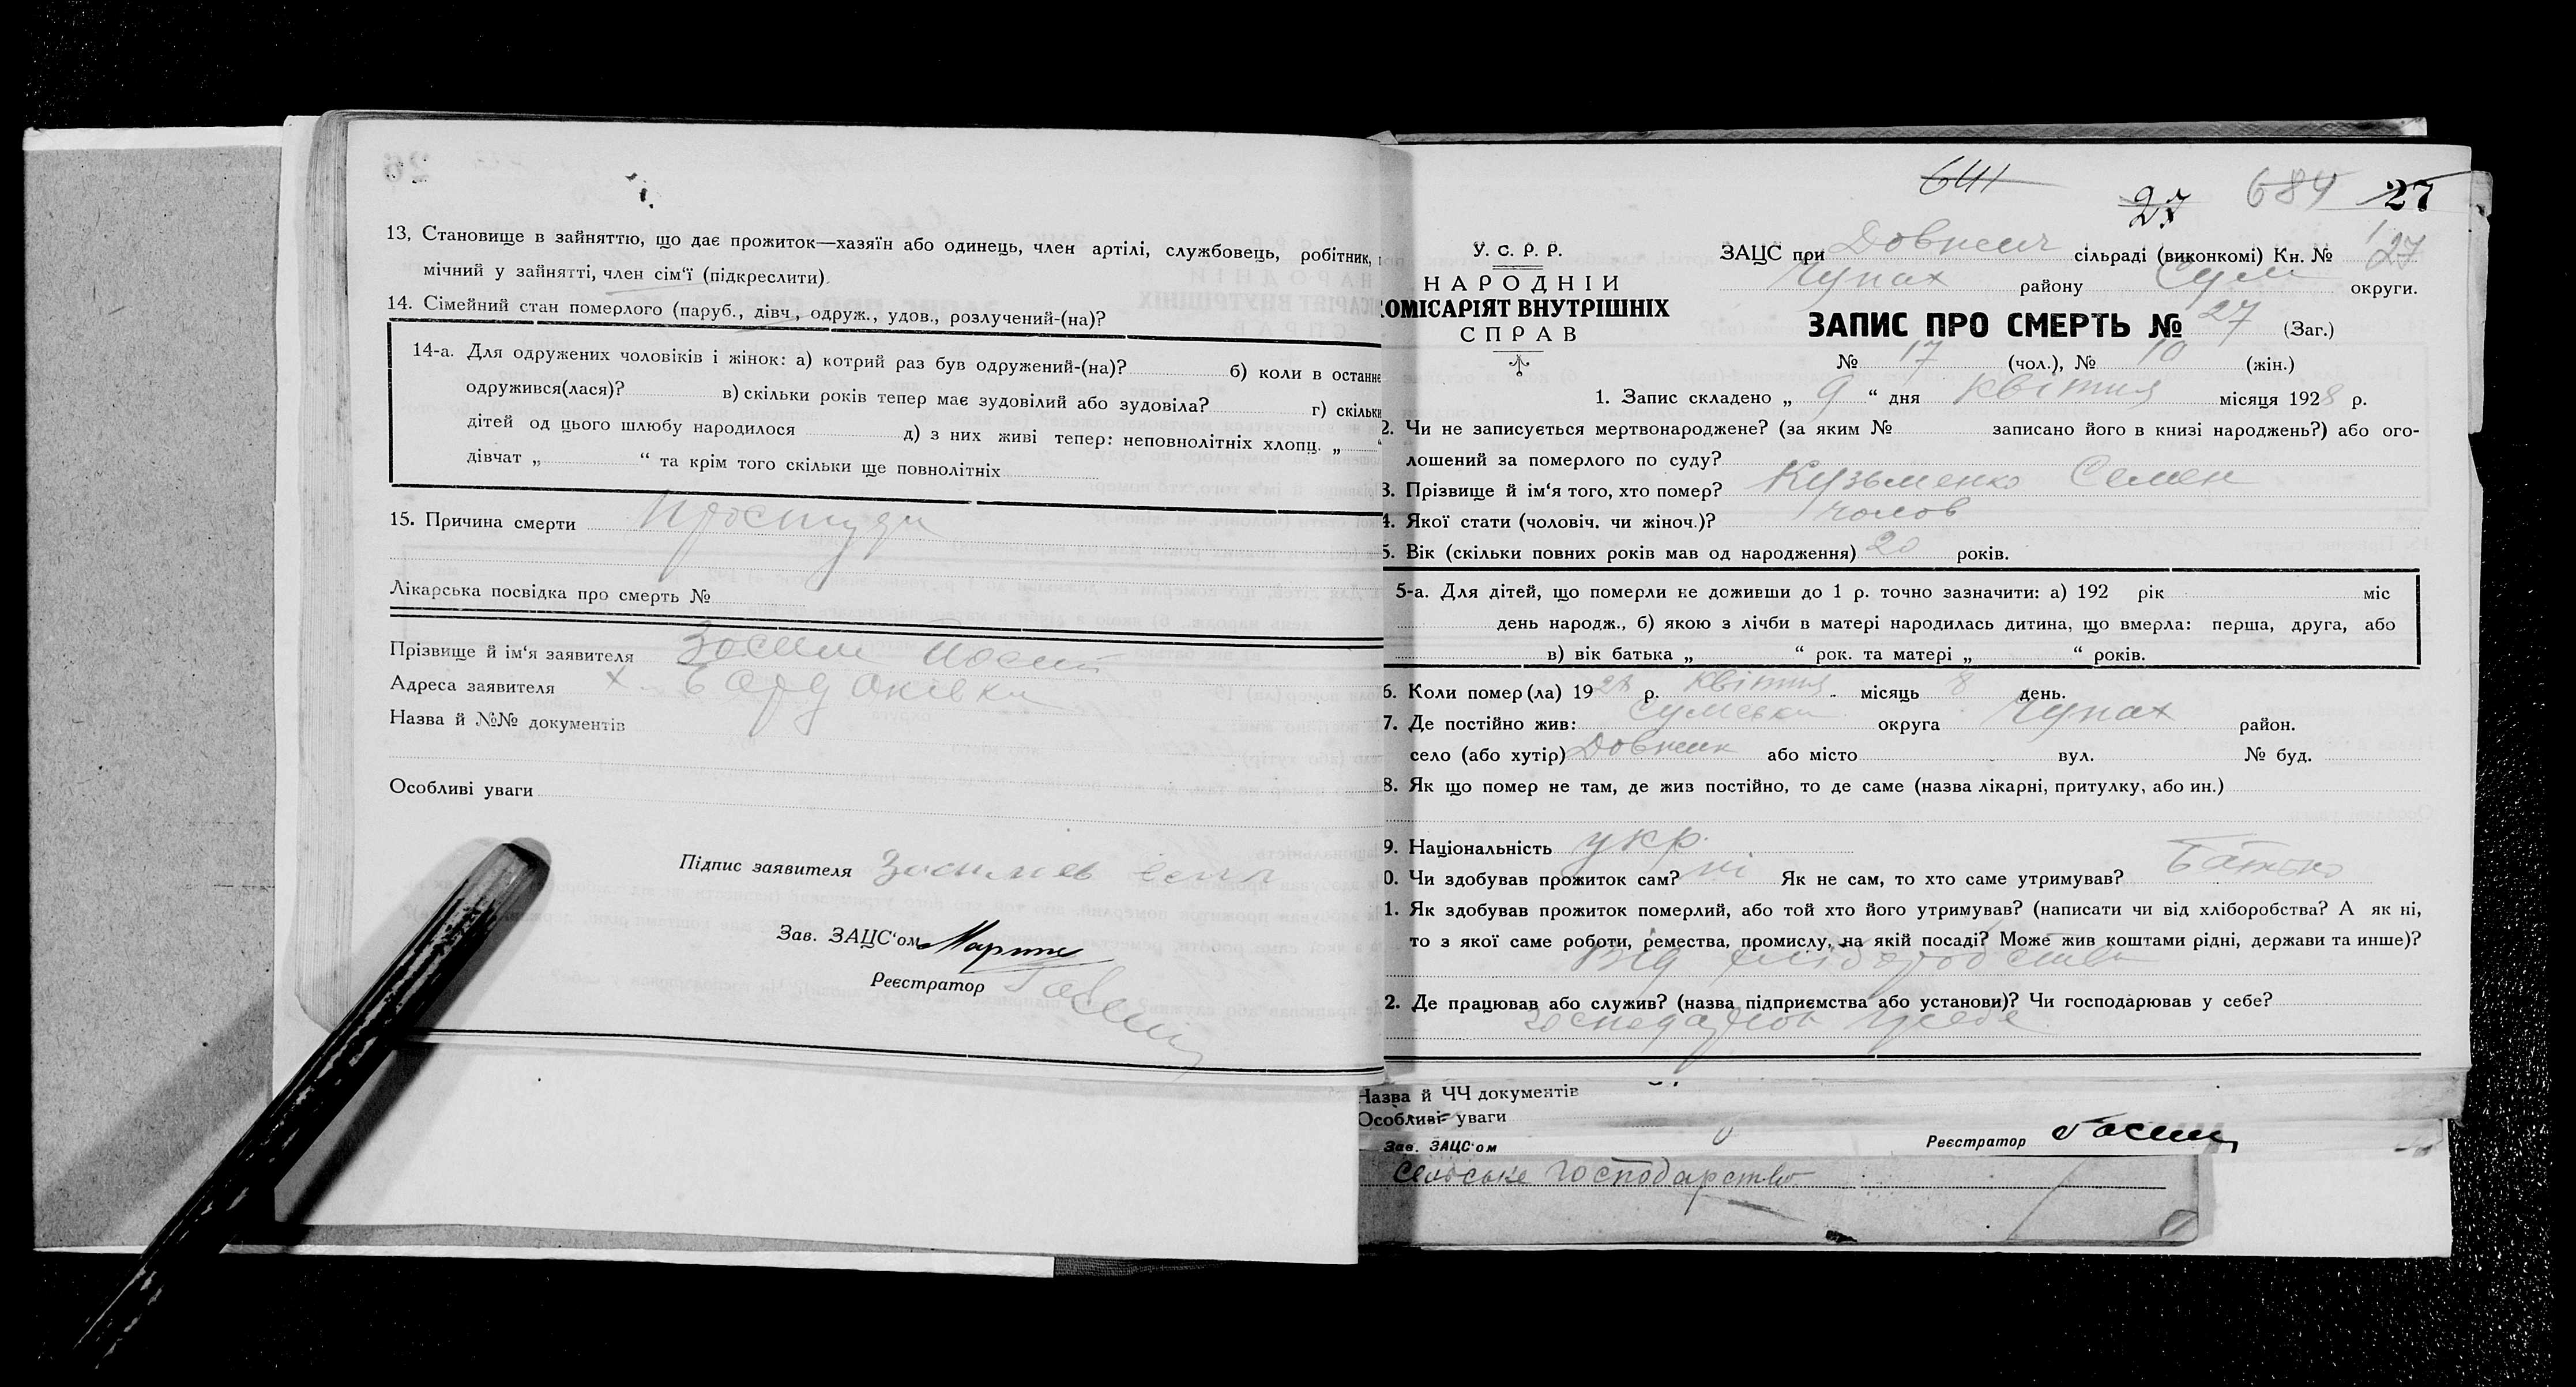 13, Становище в зайняттю, що дає прожиток—хазяїн або одинець, член артілі, службовець, робітник,
мічний у зайнятті, член сім'ї (підкреслити).
14. Сімейний стан померлого (паруб., дівч., одруж., удов., розлучений-(на)?
14-а. Для одружених чоловіків і жінок: а) котрий раз був одружений-(на)? б) коли в останнє
одружився(лася)? в) скільки років тепер має зудовілий або зудовіла? г) скільки
дітей од цього шлюбу народилося д) з них живі тепер: неповнолітніх хлопц. „
дівчат „ “ та крім того скільки ще повнолітніх
15. Причина смерти Простуди
Лікарська посвідка про смерть №
Прізвище й ім'я заявителя
Адреса заявителя х.
Назва й №№ документів
Особливі уваги
Підпис заявителя
Зав. ЗАЦС'ом
Реєстратор
641
27 684 27
У. С. Р. Р.
НАРОДНІЙ
КОМІСАРІЯТ ВНУТРІШНІХ
СПРАВ
ЗАЦС при Довжич сільраді (виконкомі) Кн. № 1
27
Чупах району Сум округи.
ЗАПИС ПРО СМЕРТЬ № 27 (Заг.)
№ 17 (чол.), № 10 (жін.)
1. Запис складено „ 9 “ дня квітня місяця 1928 р.
2. Чи не записується мертвонароджене? (за яким № записано його в книзі народжень?) або ого-
лошений за померлого по суду?
3. Прізвище й ім'я того, хто помер? Кузьменко Семен
4. Якої стати (чоловіч. чи жіноч.)? чолов
5. Вік (скільки повних років мав од народження) 20 років.
5-а. Для дітей, що померли не доживши до 1 р. точно зазначити: а) 192 рік міс
день народж., б) якою з лічби в матері народилась дитина, що вмерла: перша, друга, або
в) вік батька „ “ рок. та матері „ “ років.
6. Коли помер(ла) 1928 р. квітня місяць 8 день.
7. Де постійно жив: Сумська округа Чупах район.
село (або хутір) Довжик або місто вул. № буд.
8. Як що помер не там, де жив постійно, то де саме (назва лікарні, притулку, або ин.)
9. Національність укр.
0. Чи здобував прожиток сам? ні Як не сам, то хто саме утримував? Батько
1. Як здобував прожиток померлий, або той хто його утримував? (написати чи від хліборобства? А як ні,
то з якої саме роботи, ремества, промислу, на якій посаді? Може жив коштами рідні, держави та инше)?
Від хліборобства
2. Де працював або служив? (назва підприємства або установи)? Чи господарював у себе?
господарюв у себе
Назва й ЧЧ документів
Особливі уваги
Зав. ЗАЦС'ом Реєстратор
Сельське господарство